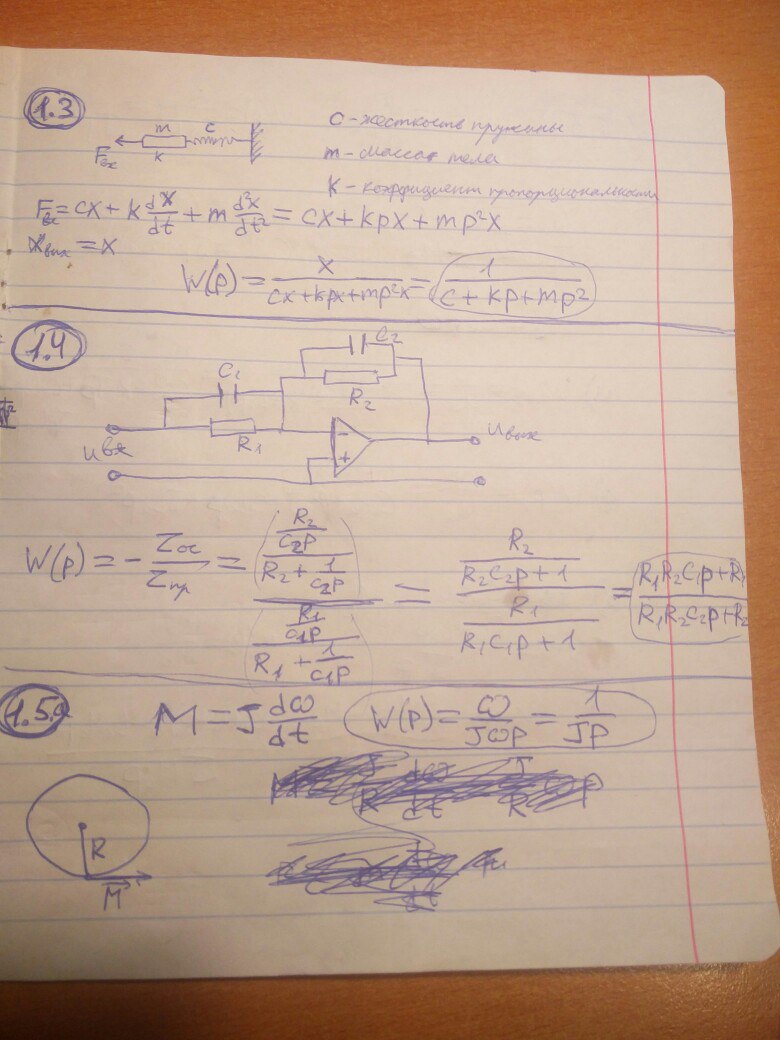 1.3
m c
Fвх k
c - жесткость пружины
m - масса тела
k - коэффициент пропорциональности
Fвх = cx + k dx/dt + m d²x/dt² = cx + kpx + mp²x
xвых = x
W(p) = x/(cx + kpx + mp²x) = 1/(c + kp + mp²)
1.4
C₂
C₁
R₂
R₁
- +
Uвх
Uвых
W(p) = - Zос/Zпр = ((R₂/(c₂p))/(R₂ + 1/(c₂p)))/((R₁/(c₁p))/(R₁ + 1/(c₁p))) = (R₂/(R₂C₂p + 1))/(R₁/(R₁C₁p + 1)) = (R₁R₂C₁p + R₂)/(R₁R₂C₂p + R₂)
1.5a
M = J dω/dt W(p) = ω/(Jωp) = 1/(Jp)
R
M